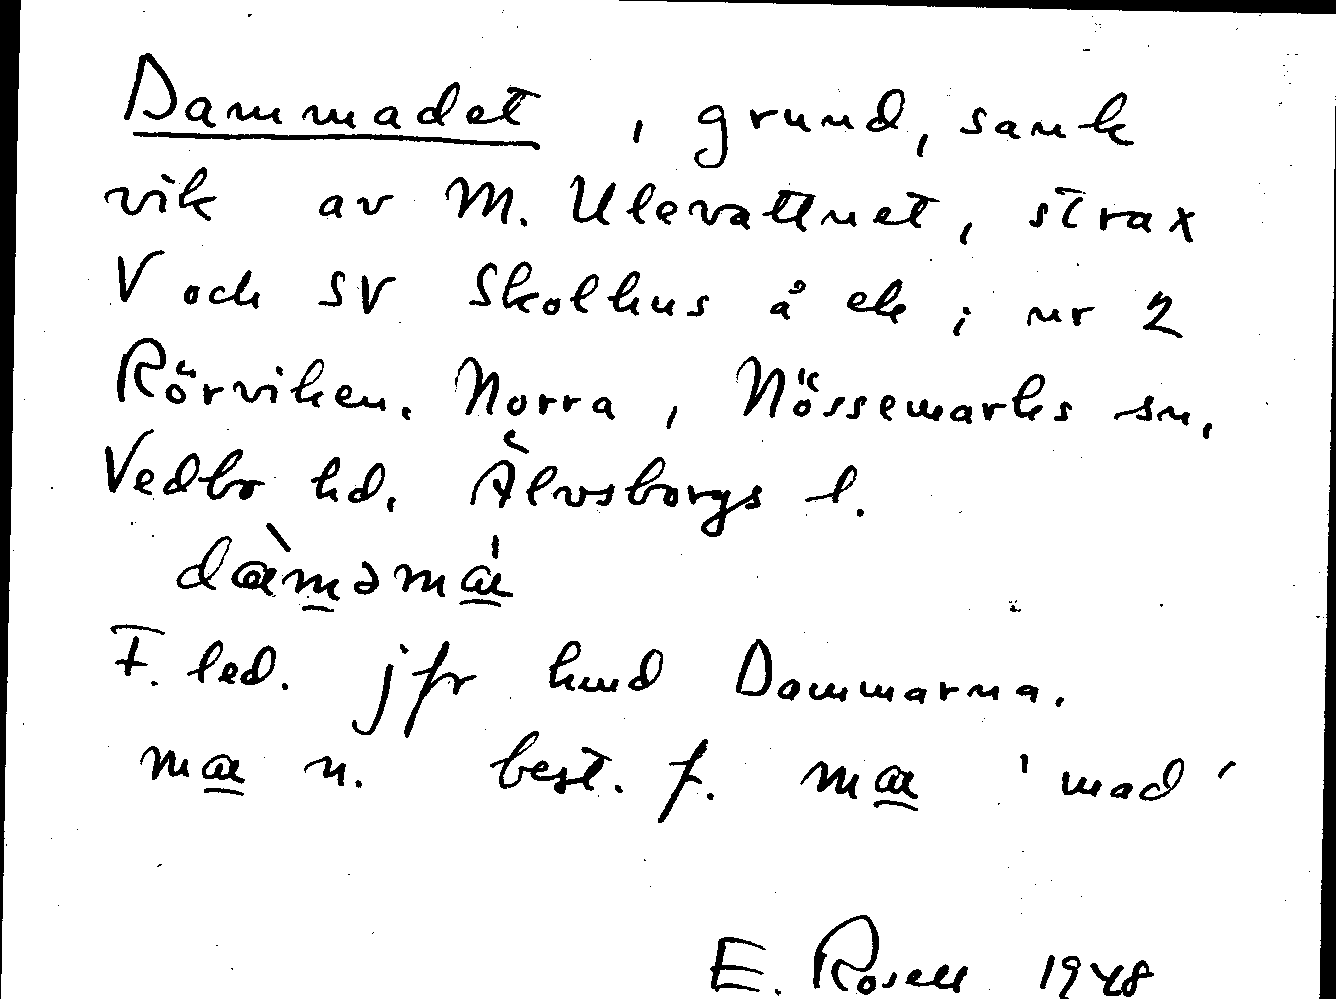 Dammadet, grund, sank
vik av M. Ulevattnet, strax
V och SV Skolhus å ek i nr 2
Rörviken. Norra, Nössemarks sn,
Vedbo hd. Älvsborgs l.
dàmǝmá
F. led. jfr hmd Dammarna.
ma n. best. f. ma 'mad'
E. Rosell 1948